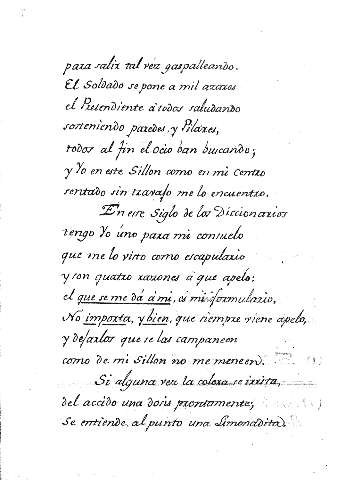 para salir tal vez gaspalleando.
El Soldado se pone a mil azares
el Pretendiente á todos saludando
sosteniendo paredes, y Pilares,
todos al fin el ocio van buscando;
y Yo en este Sillon como en mi centro
sentado sin travajo me lo encuentro.
En este Siglo de los Diccionarios
tengo Yo úno para mi consuelo
que me lo visto como escapulario
y son quatro razones á que apelo:
el que se me dá á mi, es mi formulario,
No importa, y bien, que siempre viene apelo,
y dejarlos que se las campaneen
como de mi Sillon no me meneen.
Si alguna vez la colera se irrita,
del accido una doris prontamente,
se entiende, al punto una Limonadita